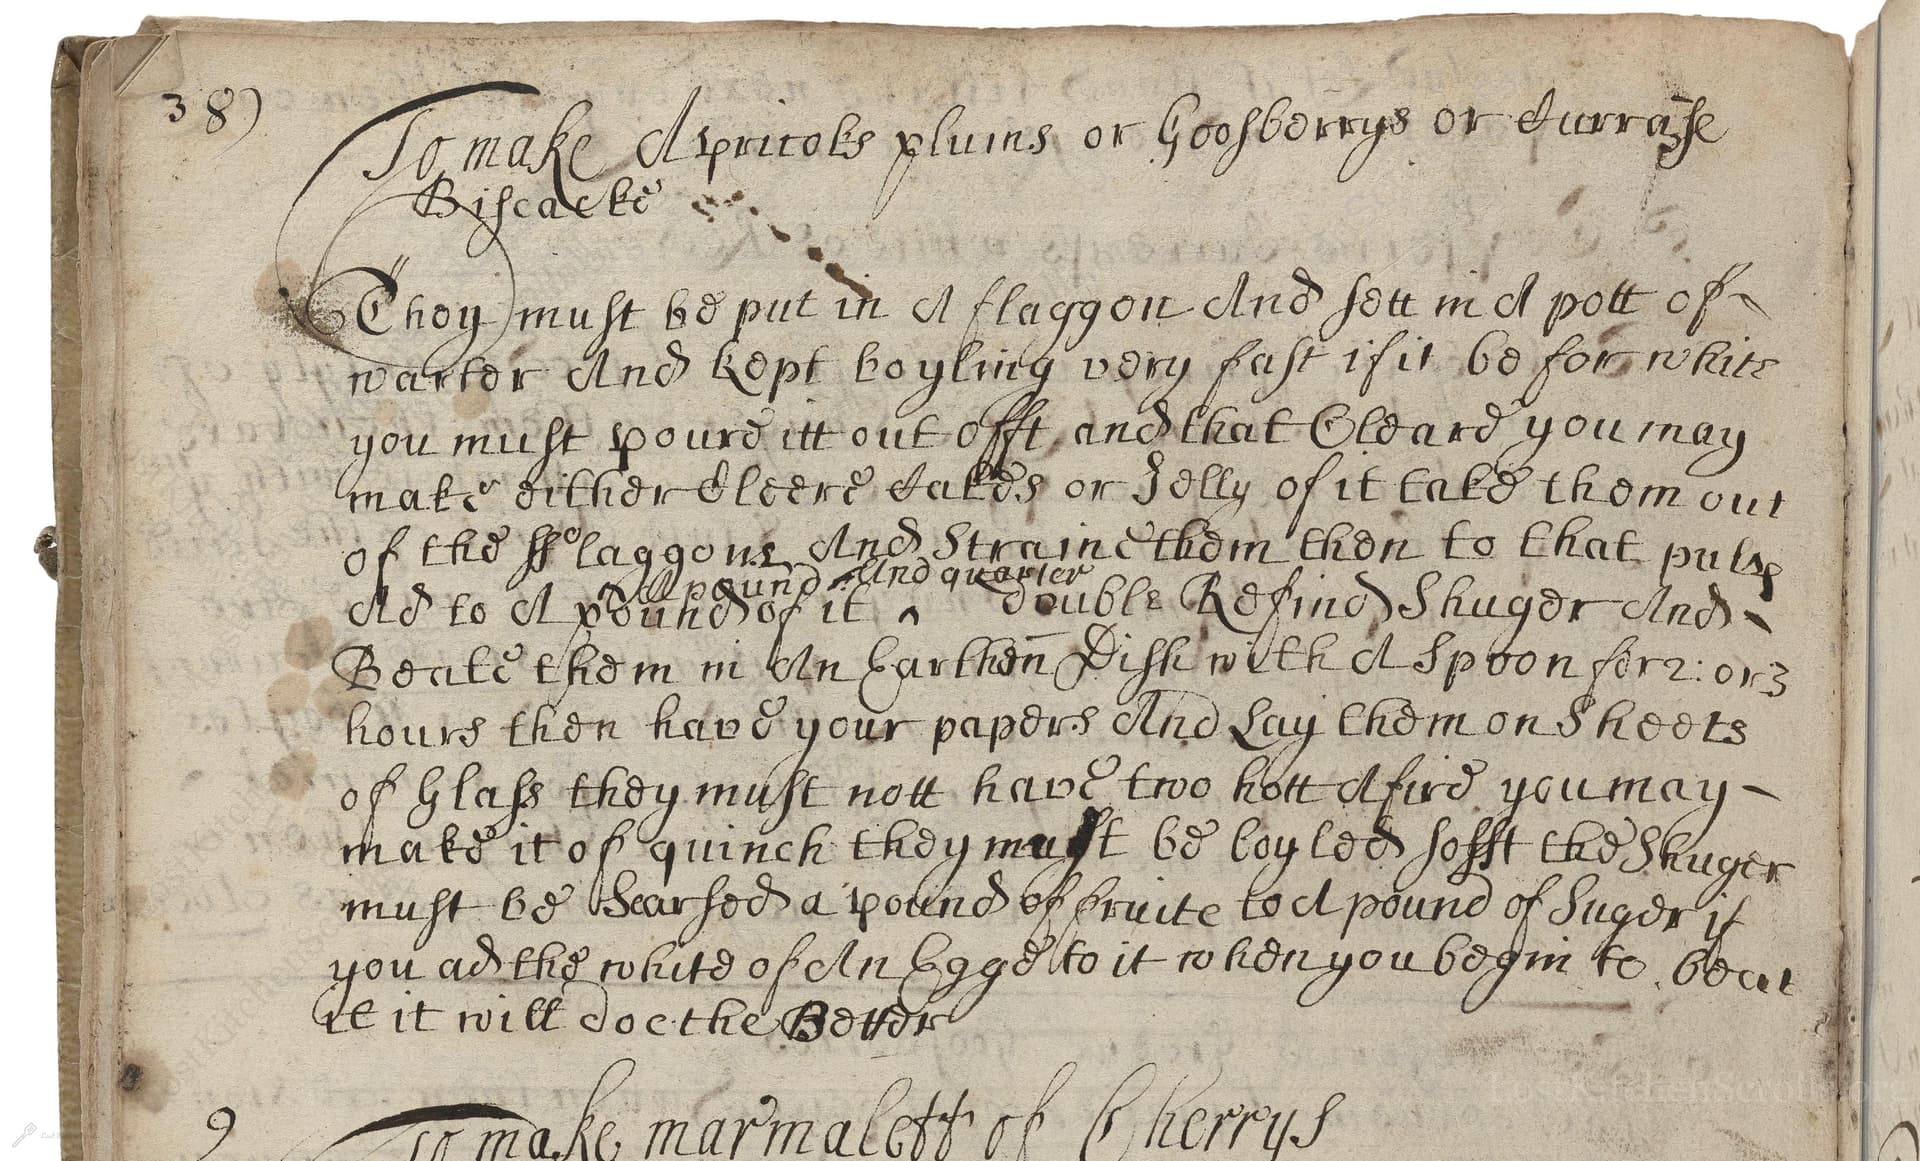 38)
To make Apricoks plums or Goosberrys or Currans
Biscacke
They must be put in A flaggon And sett in A pott of
warter And kept boyling very fast if it be for white
you must poure itt out offt and that Cleare you may
make either Cleere Cakes or Jelly of it take them out
of the fflaggons And Straine them then to that pulp
A pound And quarter
Ad to A pound of it ^ double Refind Shuger And
Beate them in An Earthen Dish with A Spoon for 2: or 3
hours then have your papers And Lay them on Sheets
of Glass they must nott have two hott A fire you may
make it of quinch they must be boyled sofft the Shuger
must be Searsed a pound of fruite to A pound of Suger if
you ad the white of An Egge to it when you begin to beat
it it will doe the Better
9
To make marmalett of Cherrys